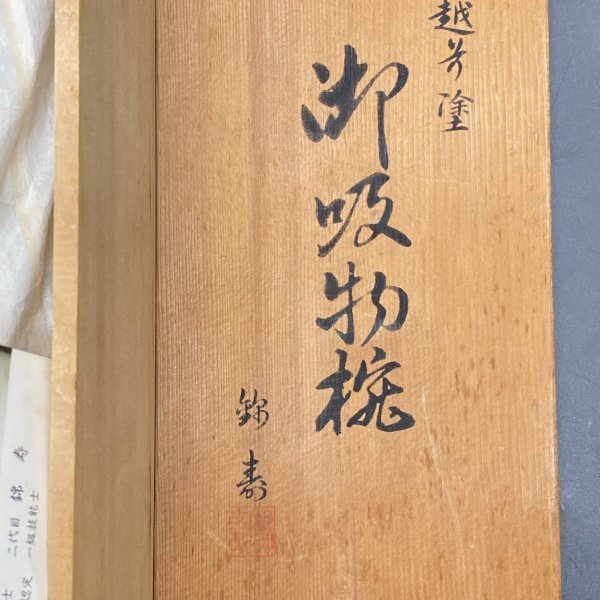 越前塗
御吸物椀
錦寿
二代目 錦寿
一級技能士